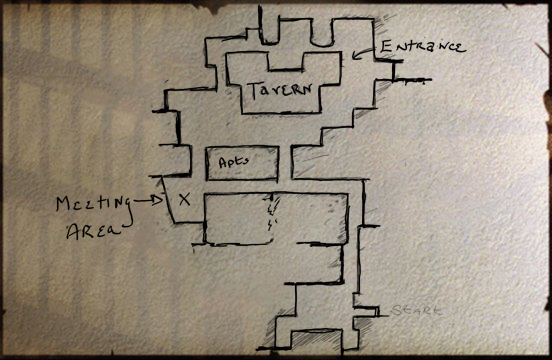 ENTRANCE
TAVERN
Apts
X
MEETING
AREA
START